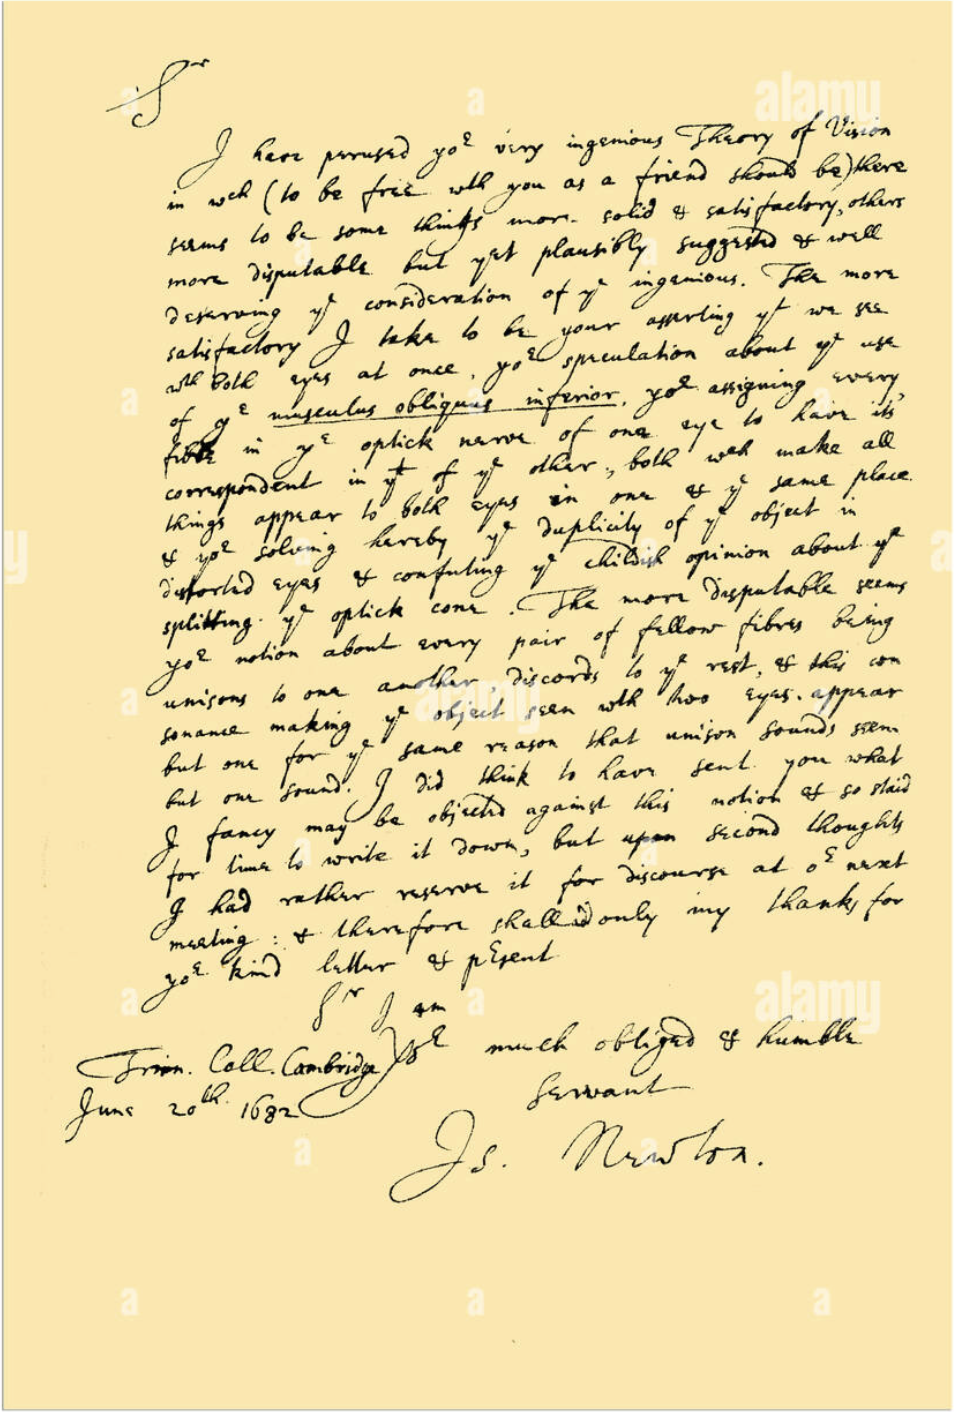 Sr
I have perused yor very ingenious Theory of Vision
in wch (to be free wth you as a friend should be) there
seems to be some things more solid & satisfactory, others
more disputable but yet plausibly suggested & well
deserving ye consideration of ye ingenious. The more
satisfactory I take to be your asserting yt we see
wth both eyes at once, yor speculation about ye use
of ye musculus obliquus inferior, yor assigning every
fibre in ye optick nerve of one eye to have its
correspondent in yt of ye other, both wch make all
things appear to both eyes in one & ye same place
& yor solving hereby ye duplicity of ye object in
distorted eyes & confuting ye childish opinion about ye
splitting ye optick cone. The more disputable seems
yor notion about every pair of fellow fibres being
unisons to one another, discords to ye rest, & this con
sonance making ye object seen wth two eyes appear
but one for ye same reason that unison sounds seem
but one sound. I did think to have sent you what
I fancy may be objected against this notion & so staid
for time to write it down, but upon second thoughts
I had rather reserve it for discourse at or next
meeting: & therefore shall add only my thanks for
yor kind letter & present
Sr I am
Yor much obliged & humble
Servant
Trin. Coll. Cambridge
June 20th. 1682
Is. Newton.
alamy